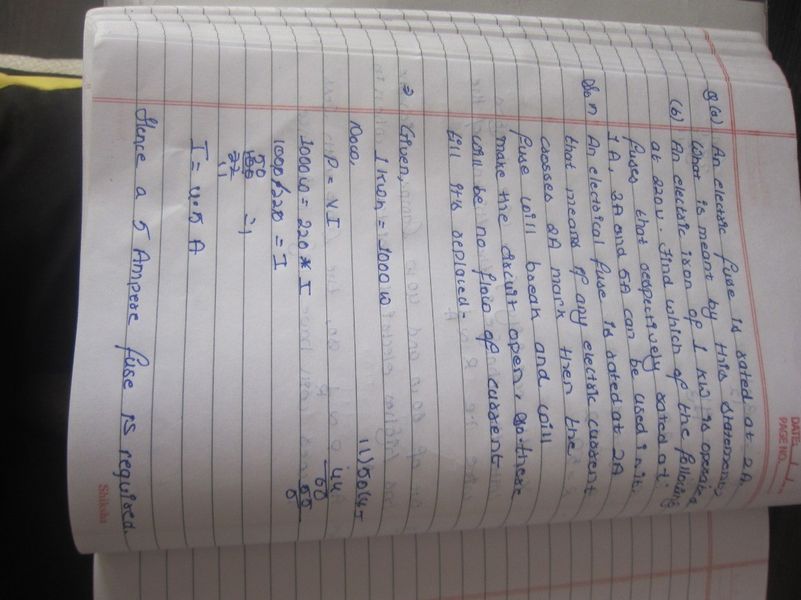 DATE
PAGE NO.
Q (a) An electric fuse is rated at 2A.
What is meant by this statement
(b) An electric iron of 1 KW is operated
at 220v. Find which of the following
fuses that respectively rated at
1A, 3A and 5A can be used in it.
Soln An electrical fuse is rated at 2A
that means if any electric current
crosses 2A mark then the
fuse will break and will
make the circuit open, so there
will be no flow of current
till it's replaced.
⇒ Given,
1 Kwh = 1000w
now,
P = VI
1000w = 220 * I
1000/220 = I
50
22
11
= I
44
60
55
5
I = 4.5 A
Hence a 5 Ampere fuse is required.
Shiksha